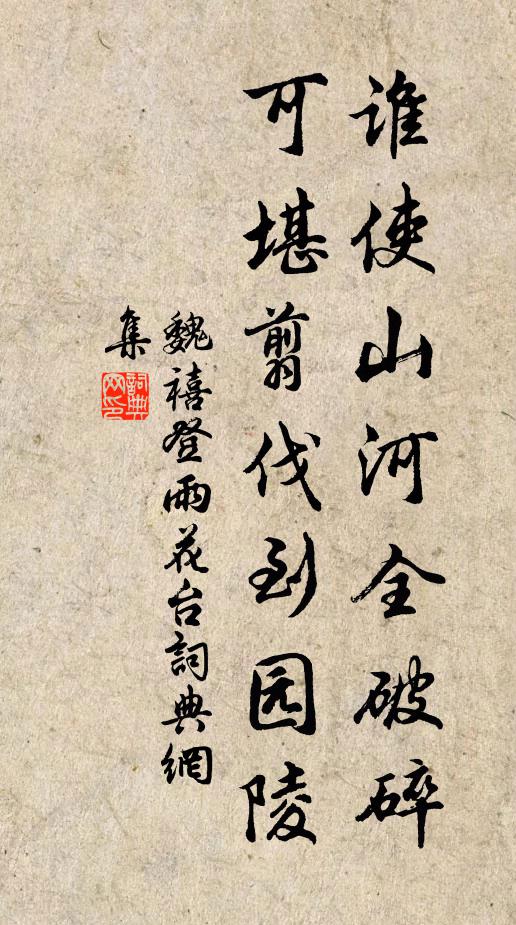 谁使山河全破碎
可堪翦伐到园陵
魏禧登雨花台詞典網
集
詞典网印